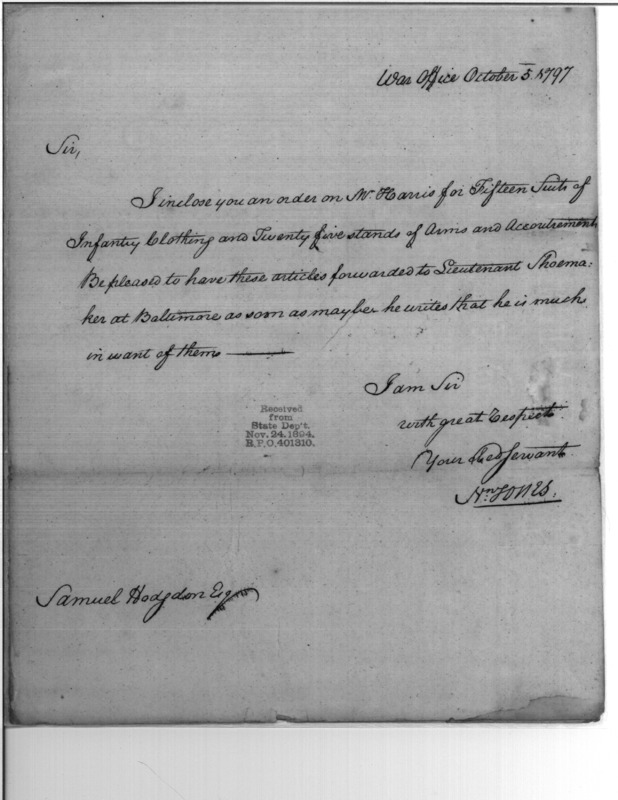 War Office October 5 1797
Sir,
I inclose you an order on Mr Harris for Fifteen Suits of
Infantry Clothing and Twenty five stands of Arms and Accoutrements
Be pleased to have these articles forwarded to Lieutenant Shoema=
ker at Baltimore as soon as may be he writes that he is much
in want of them
I am Sir
with great respect
Your Obed Servant
Jones.
Received
from
State Dep't.
Nov. 24.1894.
R.P.O.401310.
Samuel Hodgdon Esqr